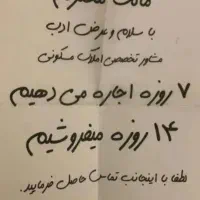 مالک محترم
با سلام و عرض ادب
مشاور تخصصی املاک مسکونی
۷ روزه اجاره می دهیم
۱۴ روزه میفروشیم
لطفا با اینجانب تماس حاصل فرمایید.